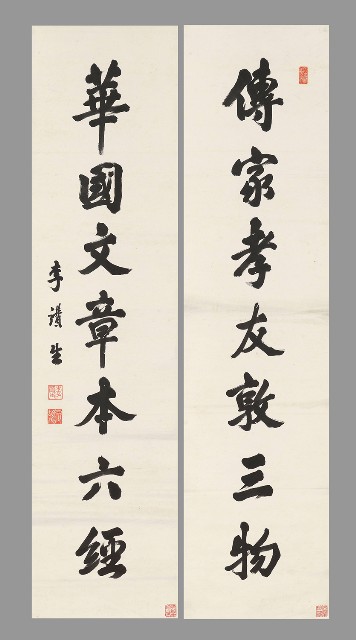 傳家孝友敦三物
華國文章本六經
李讚生